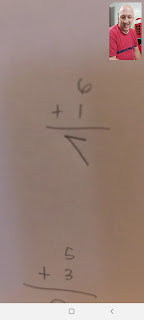 6
+ 1
7
5
+ 3